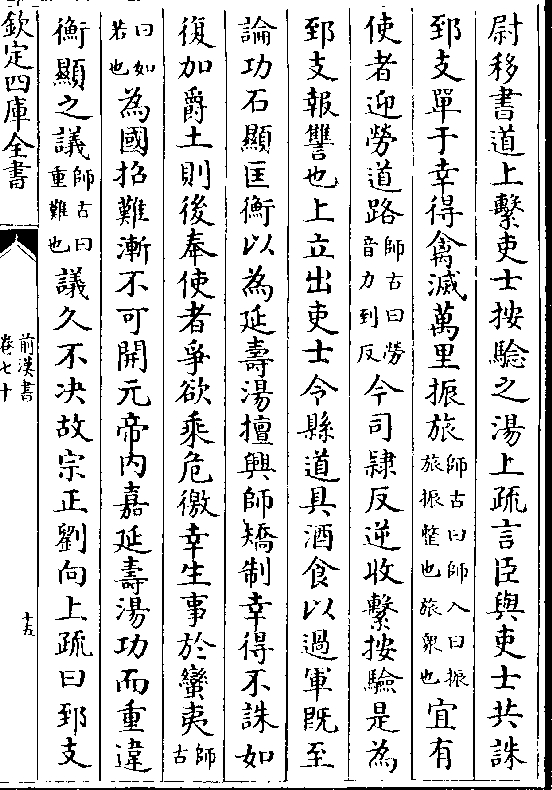 尉移書道上繫吏士按驗之湯上疏言臣與吏士共誅
郅支單于幸得禽滅萬里振旅師古曰師入曰振旅振整也旅衆也宜有
使者迎勞道路師古曰勞音力到反今司隷反逆收繫按驗是為
郅支報讐也上立出吏士令縣道具酒食以過軍既至
論功石顯匡衡以為延壽湯擅興師矯制幸得不誅如
復加爵土則後奉使者爭欲乘危徼幸生事於蠻夷師古
曰如若也為國招難漸不可開元帝内嘉延壽湯功而重違
衡顯之議師古曰重難也議久不决故宗正劉向上疏曰郅支
欽定四庫全書
前漢書
卷七十
十五